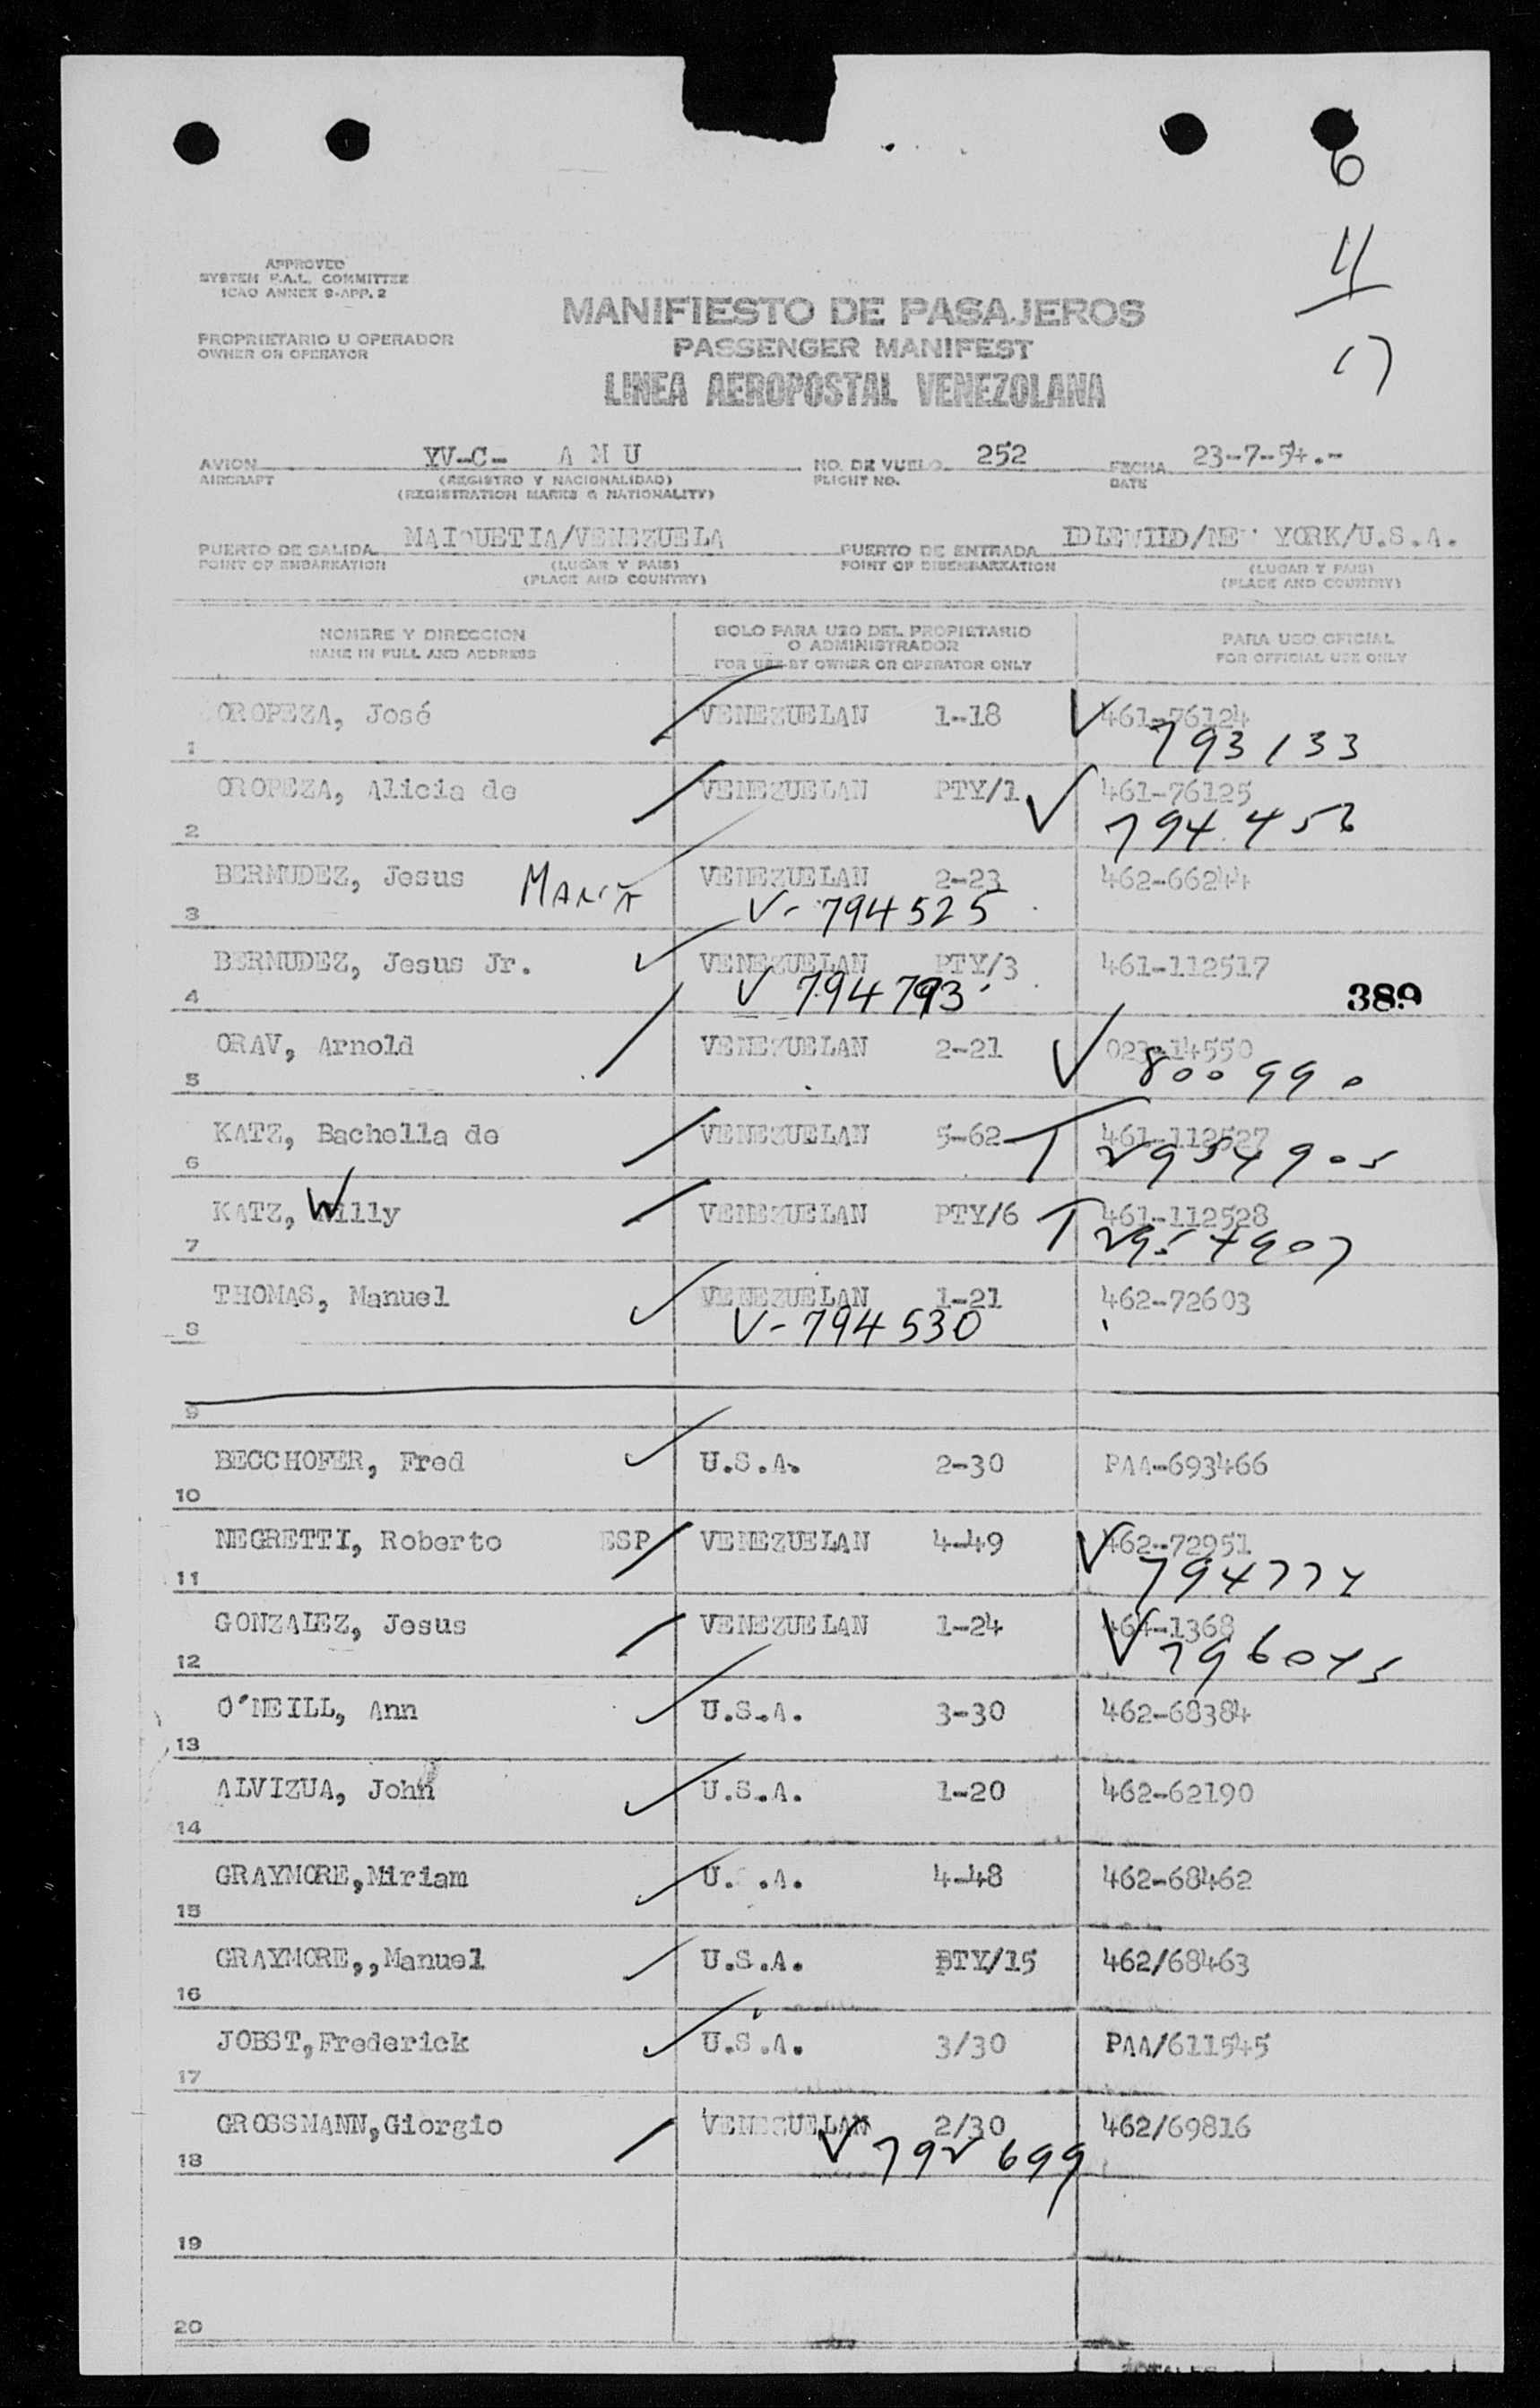 6
11
17
APPROVED
SYSTEM F.A.L. COMMITTEE
ICAO ANNEX 9-APP. 2
MANIFIESTO DE PASAJEROS
PROPRIETARIO U OPERADOR
OWNER OR OPERATOR
PASSENGER MANIFEST
LINEA AEROPOSTAL VENEZOLANA
AVION YV-C- A M U NO. DE VUELO 252 FECHA 23-7-54.-
AIRCRAFT (REGISTRO Y NACIONALIDAD) FLIGHT NO. DATE
(REGISTRATION MARKS & NATIONALITY)
PUERTO DE SALIDA MAIQUETIA/VENEZUELA PUERTO DE ENTRADA IDLEWILD/NEW YORK/U.S.A.
POINT OF EMBARKATION (LUGAR Y PAIS) POINT OF DISEMBARKATION (LUGAR Y PAIS)
(PLACE AND COUNTRY) (PLACE AND COUNTRY)
NOMBRE Y DIRECCION SOLO PARA USO DEL PROPIETARIO PARA USO OFICIAL
O ADMINISTRADOR
NAME IN FULL AND ADDRESS FOR USE BY OWNER OR OPERATOR ONLY FOR OFFICIAL USE ONLY
OROPEZA, José VENEZUELAN 1-18 461-76124
1 V 793133
OROPEZA, Alicia de VENEZUELAN PTY/1 461-76125
2 V 794456
BERMUDEZ, Jesus MARIA VENEZUELAN 2-23 462-66244
3 V-794525
BERMUDEZ, Jesus Jr. VENEZUELAN PTY/3 461-112517
4 V 794793 389
ORAV, Arnold VENEZUELAN 2-21 023-14550
5 V 800990
KATZ, Bachella de VENEZUELAN 5-62 461-112527
6 T 2954905
KATZ, Willy VENEZUELAN PTY/6 461-112528
7 T 2954907
THOMAS, Manuel VENEZUELAN 1-21 462-72603
8 V-794530
9
BECCHOFER, Fred U.S.A. 2-30 PAA-693466
10
NEGRETTI, Roberto ESP VENEZUELAN 4-49 462-72951
11 V 794774
GONZALEZ, Jesus VENEZUELAN 1-24 464-1368
12 V 796045
O'NEILL, Ann U.S.A. 3-30 462-68384
13
ALVIZUA, John U.S.A. 1-20 462-62190
14
GRAYMORE,Miriam U. .A. 4-48 462-68462
15
GRAYMORE,,Manuel U.S.A. PTY/15 462/68463
16
JOBST,Frederick U.S.A. 3/30 PAA/611545
17
GROSSMANN,Giorgio VENEZUELAN 2/30 462/69816
18 V 792699
19
20